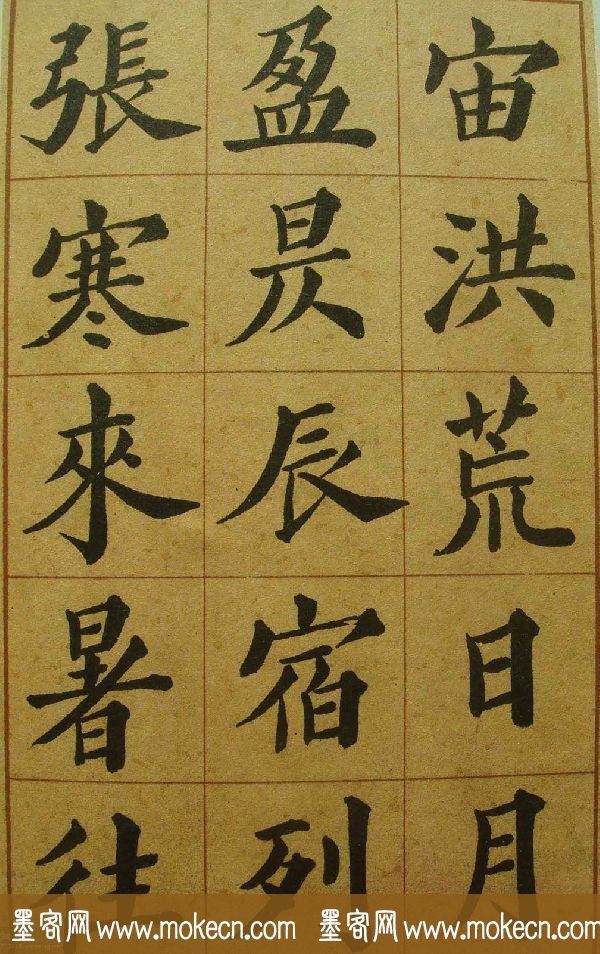 宙洪荒日月
盈昃辰宿列
張寒來暑往
墨客网 www.mokecn.com 墨客网 www.mokecn.com